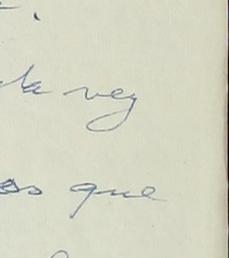 ta vez
os que